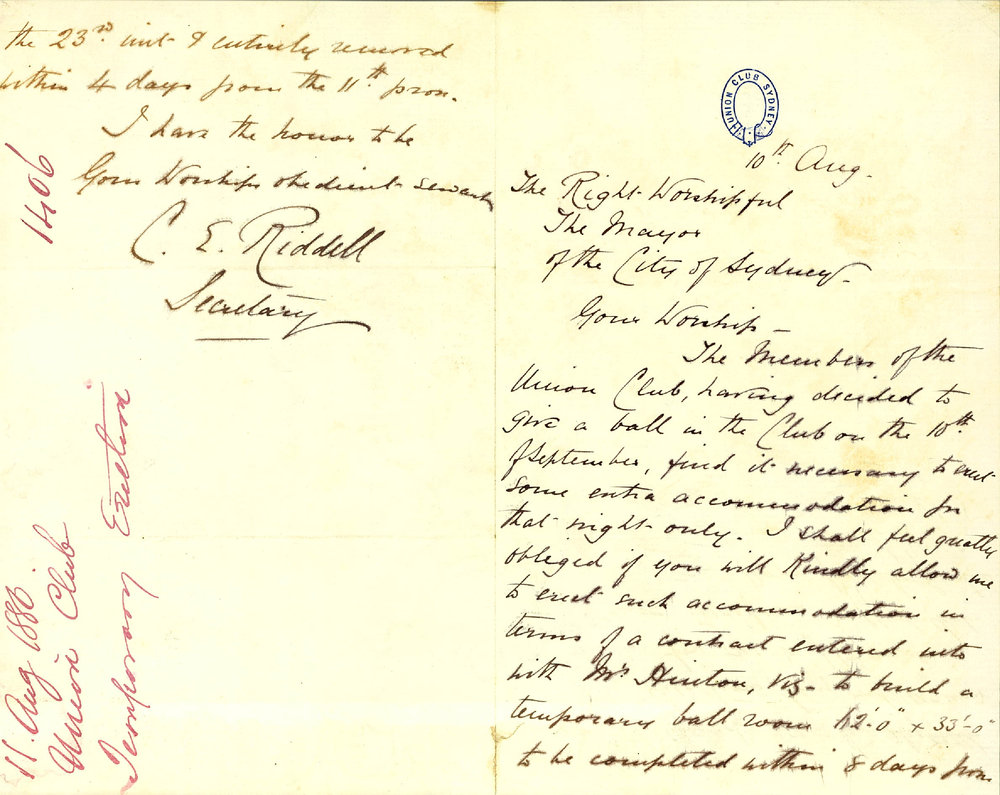 UNION CLUB SYDNEY
10th Aug.
The Right Worshipful
The Mayor
of the City of Sydney.
Your Worship -
The Members of the
Union Club, having decided to
give a ball in the Club on the 10th
of September, find it necessary to erect
some extra accommodation for
that night only. I shall feel greatly
obliged if you will Kindly allow me
to erect such accommodation in
terms of a contract entered into
with Mr Hinton, viz - to build a
temporary ball room 2'-0" x 33'-0"
to be completed within 8 days from
the 23rd inst & entirely removed
within 4 days from the 11th prox.
I have the honor to be
Your Worships obedient servant
C. E. Riddell
Secretary
1406
11. Aug 1886
Union Club
Temporary Erection